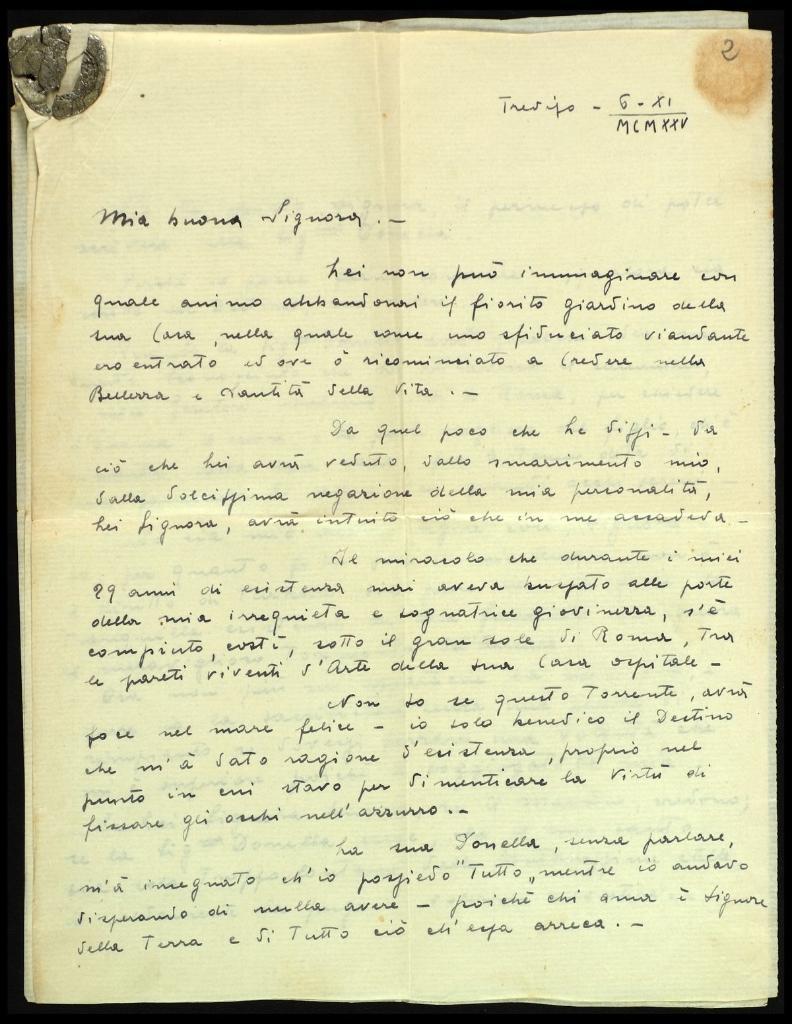 2
Trevijo - 6 - XI
MCMXXV
Mia buona Signora. -
Lei non può immaginare con
quale animo abbandonai il fiorito giardino della
sua Casa, nella quale come uno sfiduciato viandante
ero entrato ed ove ò ricominciato a credere nella
Bellezza e Santità della Vita. -
Da quel poco che Le dissi - da
ciò che Lei avrà veduto, dallo smarrimento mio,
dalla dolcissima negazione della mia personalità,
Lei Signora, avrà intuito ciò che in me accadeva -
Il miracolo che durante i miei
29 anni di esistenza mai aveva bussato alle porte
della mia irrequieta e sognatrice giovinezza, s'è
compiuto, costì, sotto il gran sole di Roma, tra
le pareti viventi d'Arte della sua Casa ospitale -
Non so se questo Torrente, avrà
foce nel mare felice - io solo benedico il Destino
che m'à dato ragione d'esistenza, proprio nel
punto in cui stavo per dimenticare la virtù di
fissare gli occhi nell'azzurro. -
La sua Donella, senza parlare,
m'à insegnato ch'io possiedo "Tutto" mentre io andavo
disperando di nulla avere - poiché chi ama è Signore
della Terra e di Tutto ciò ch'essa arreca. -